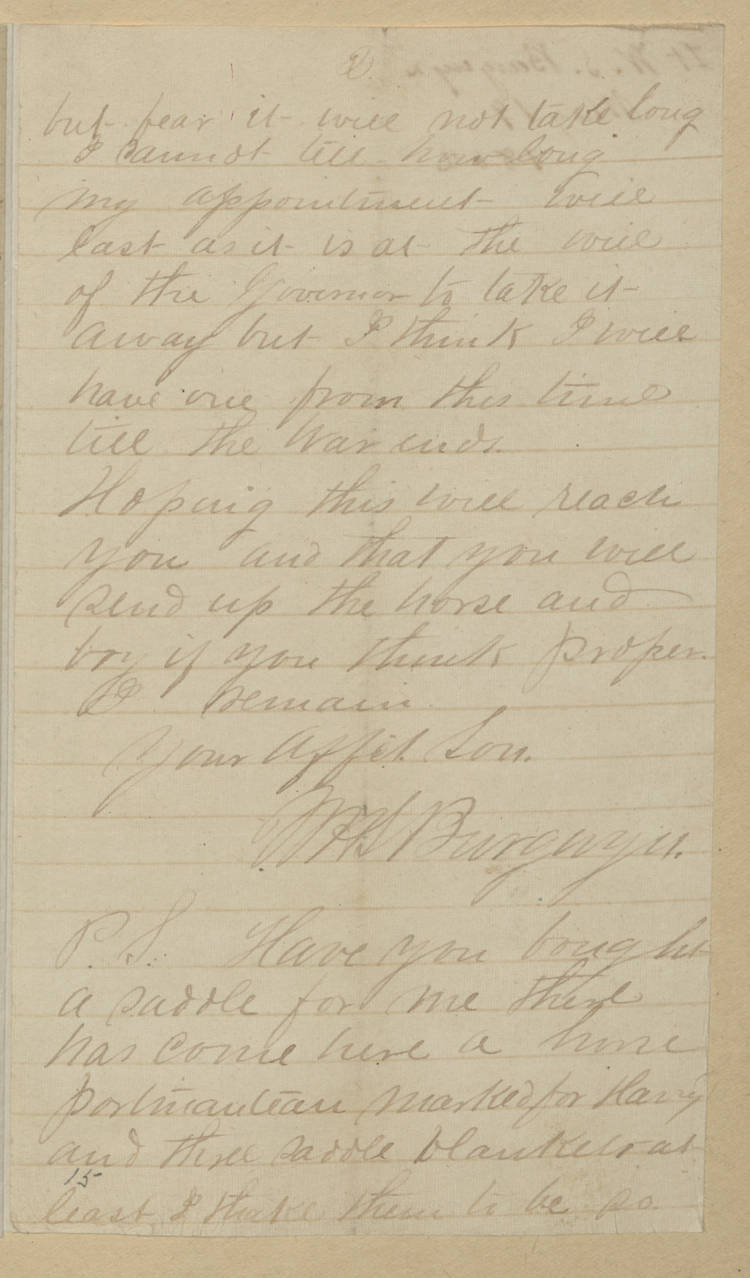 2.
but fear it will not take long
I cannot tell how long
my appointment will
last as it is at the will
of the Governor to take it
away but I think I will
have one from this time
till the War ends.
Hoping this will reach
you and that you will
send up the horse and
boy if you think proper.
I remain
Your Affct. Son.
W H S Burgwyn.
P. S. Have you bought
a saddle for me there
has come here a horse
portmanteau marked for Harry
and three saddle blankets at
15
least I think them to be so.